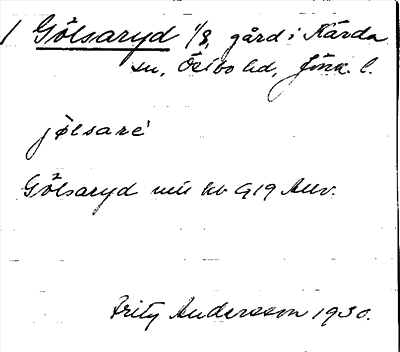 1 Gölsaryd 1/8, gård i Kärda
sn, Östbo hd, Jönk. l.
jølsaré
Gölsaryd min kb G19 Anv.
Fritz Andersson 1930.